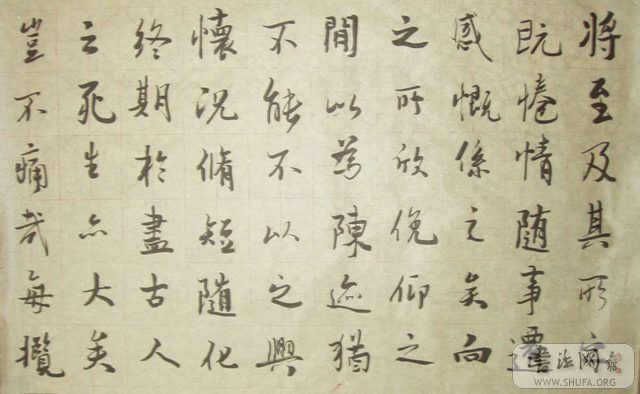 將至及其所
既惓情随事遷
感慨係之矣向
之所欣俛仰之
間以為陳迹猶
不能不以之興
懷況脩短随化
終期於盡古人
云死生亦大矣
豈不痛哉每攬
書法网
WWW.SHUFA.ORG